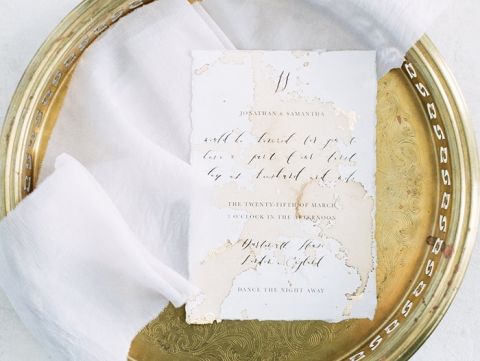 JS
JONATHAN & SAMANTHA
would be honored for you to
have a part of our lives,
day as husband and wife
THE TWENTY-FIFTH OF MARCH
O'CLOCK IN THE AFTERNOON
House
London, England
DANCE THE NIGHT AWAY